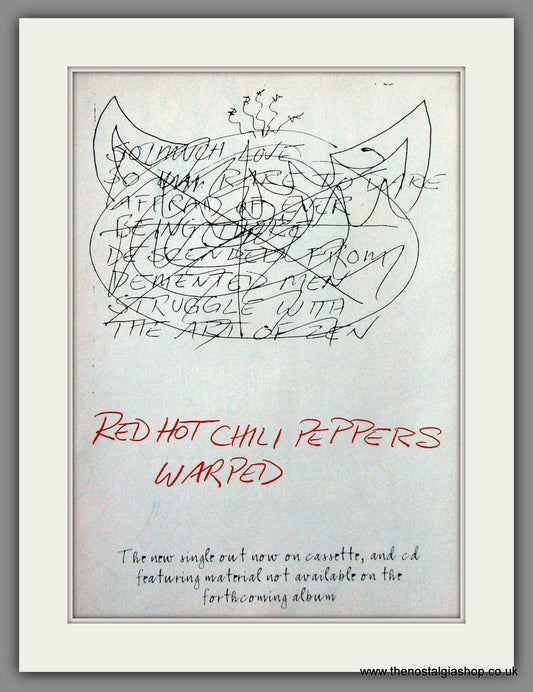 SO MUCH LOVE
SO RARE TO DARE
AFRAID OF EVER
BEING THERE
DESCENDED FROM
DEMENTED MEN
STRUGGLE WITH
THE ART OF ZEN
RED HOT CHILI PEPPERS
WARPED
The new single out now on cassette, and cd
featuring material not available on the
forthcoming album
www.thenostalgiashop.co.uk